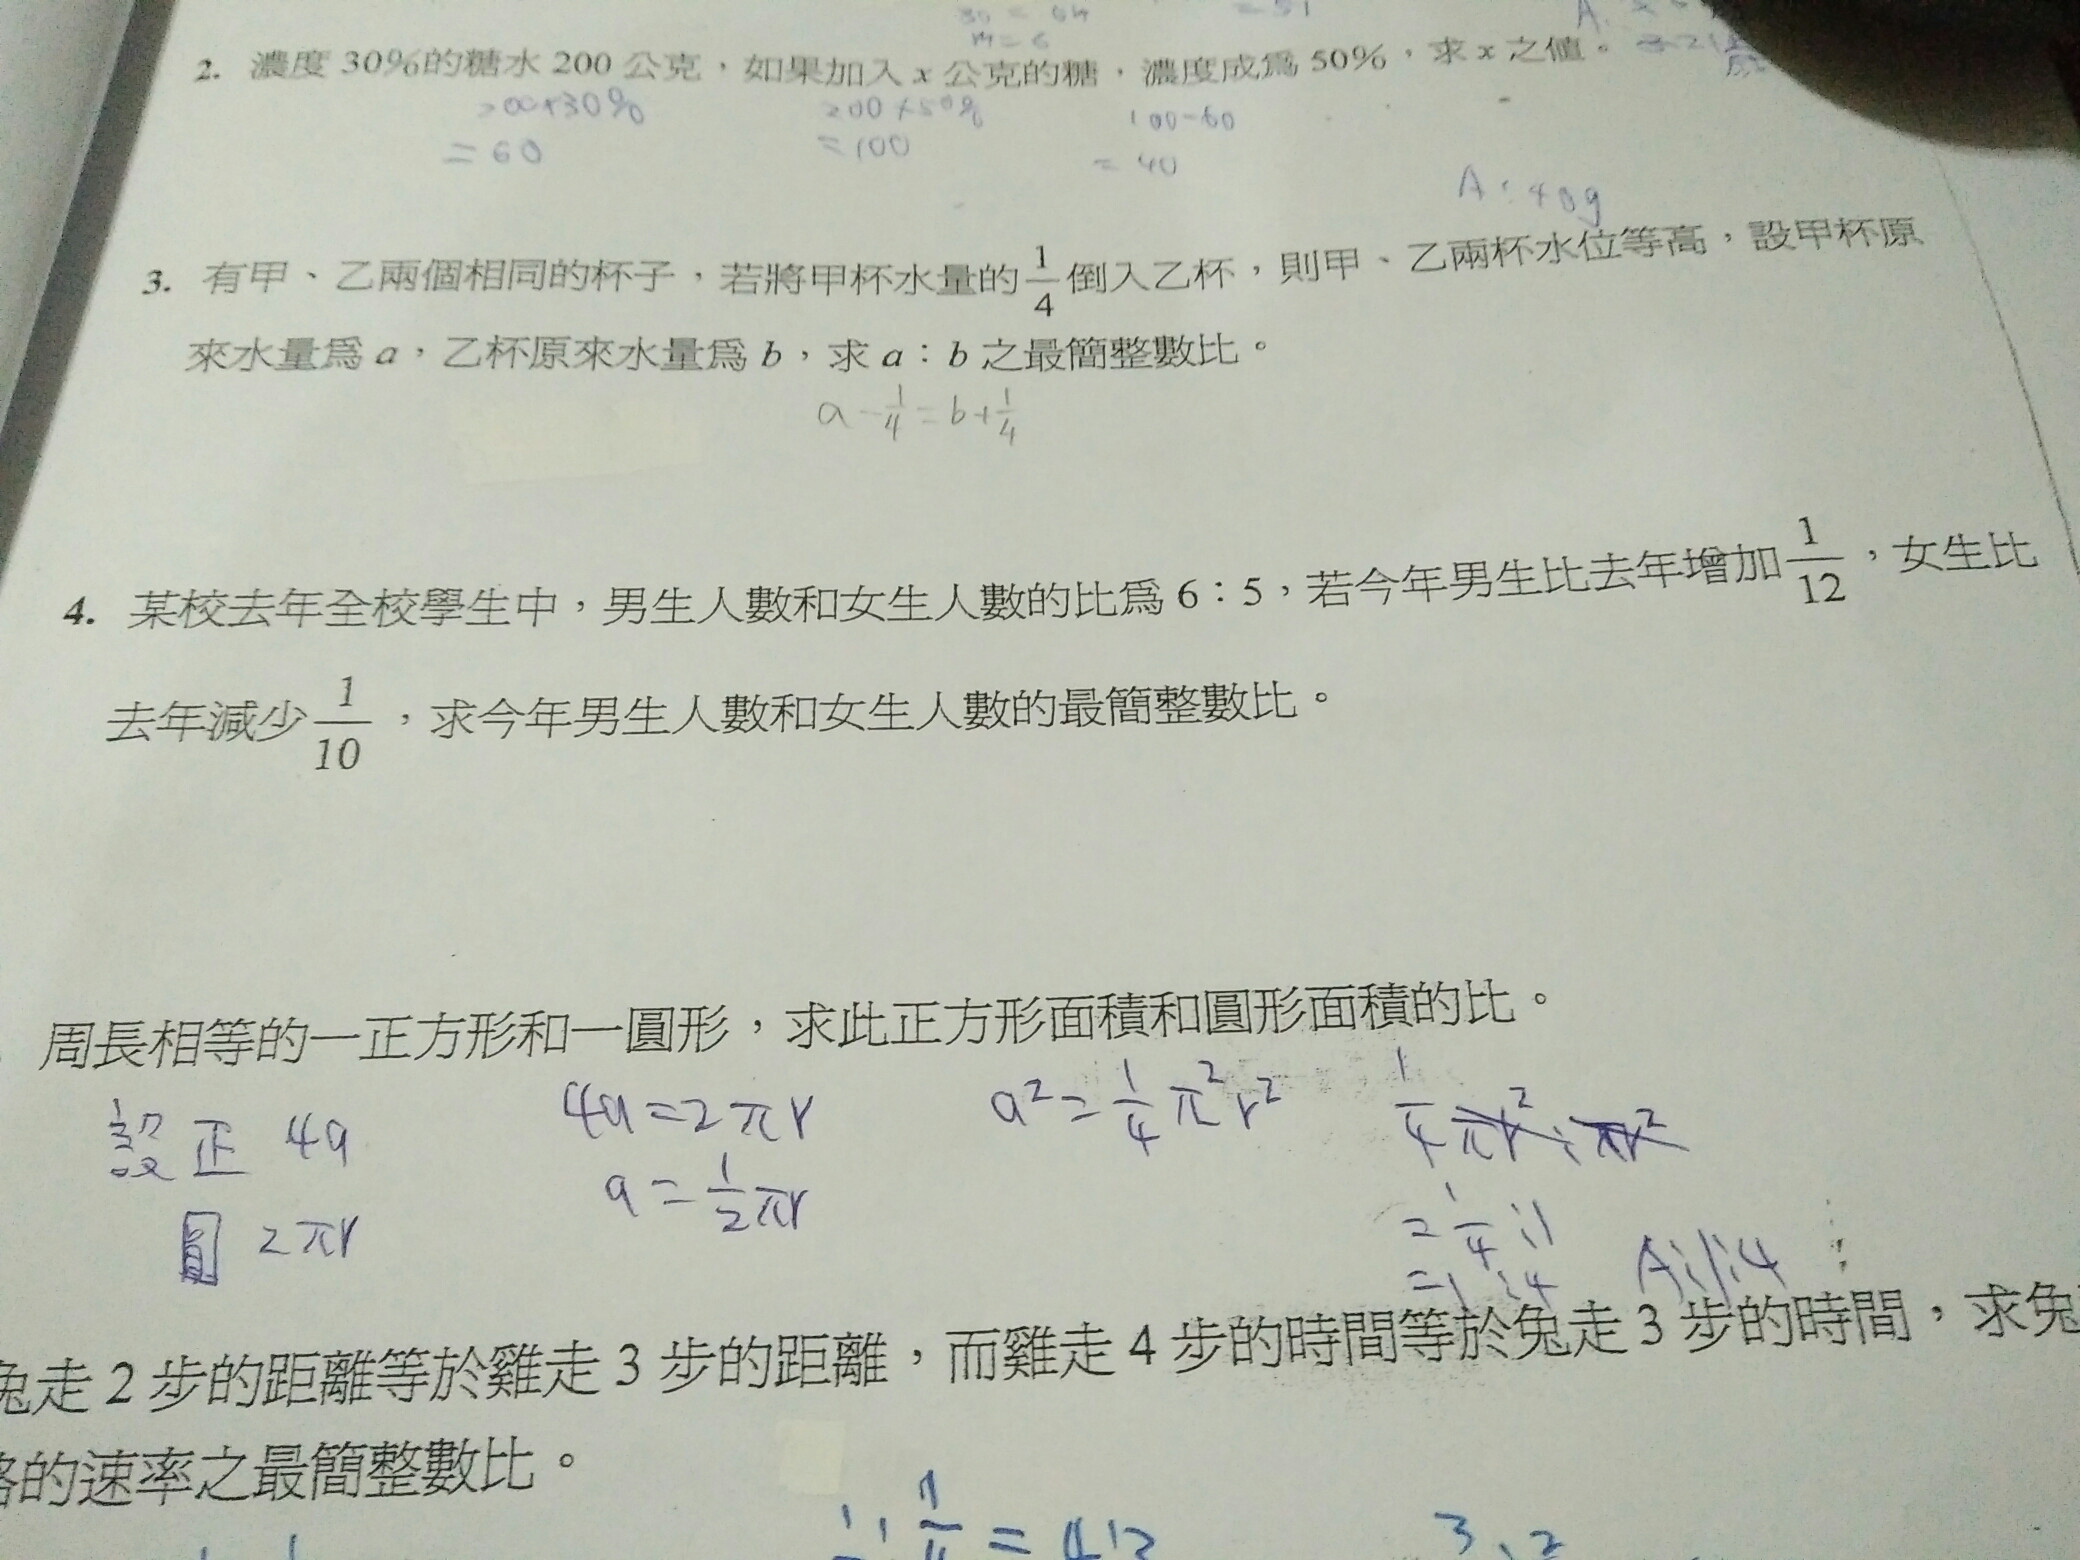 2. 濃度 30%的糖水 200 公克，如果加入 x 公克的糖，濃度成為 50%，求 x 之值。
200×30% 200×50% 100-60
=60 =100 =40
A:40g
3. 有甲、乙兩個相同的杯子，若將甲杯水量的 1/4 倒入乙杯，則甲、乙兩杯水位等高，設甲杯原
來水量為 a，乙杯原來水量為 b，求 a：b 之最簡整數比。
a-1/4=b+1/4
4. 某校去年全校學生中，男生人數和女生人數的比為 6：5，若今年男生比去年增加 1/12，女生比
去年減少 1/10，求今年男生人數和女生人數的最簡整數比。
周長相等的一正方形和一圓形，求此正方形面積和圓形面積的比。
設正 4a 4a=2πr a²=1/4π²r² 1/4πr²:πr²
圓 2πr a=1/2πr =1/4:1
=1:4 A:1:4
兔走 2 步的距離等於雞走 3 步的距離，而雞走 4 步的時間等於兔走 3 步的時間，求兔
的速率之最簡整數比。